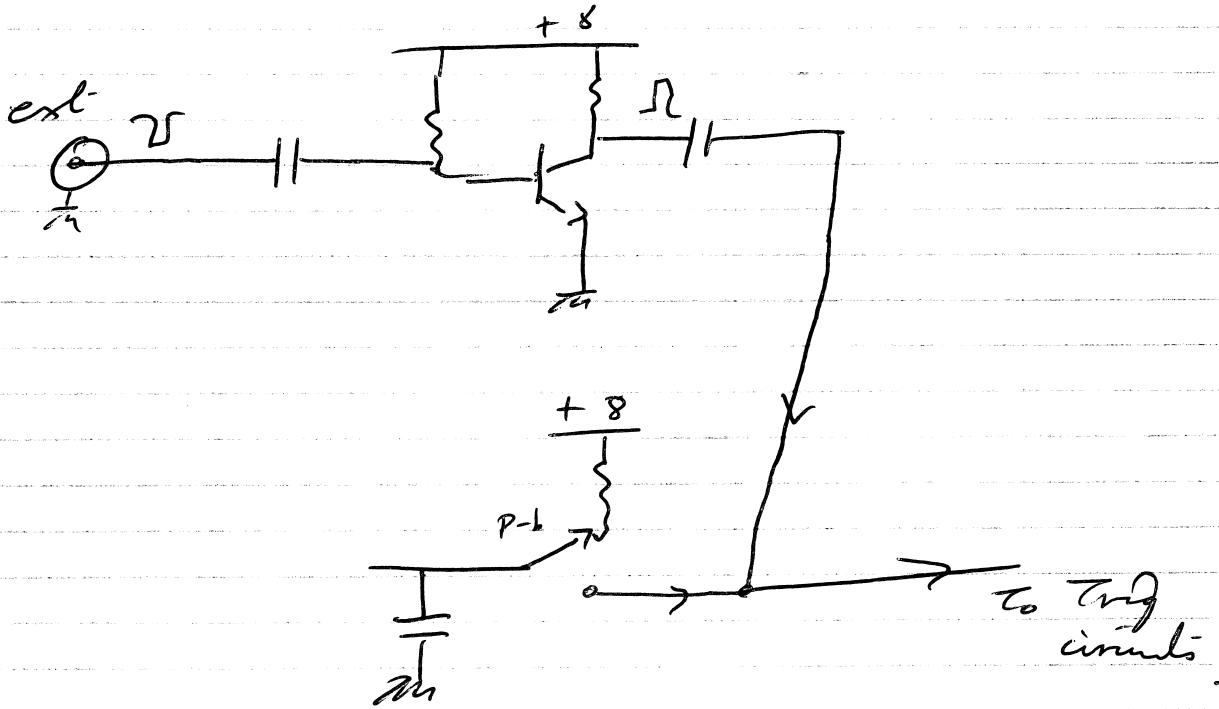 + 8
ext
+ 8
p-b
To Trig
circuits